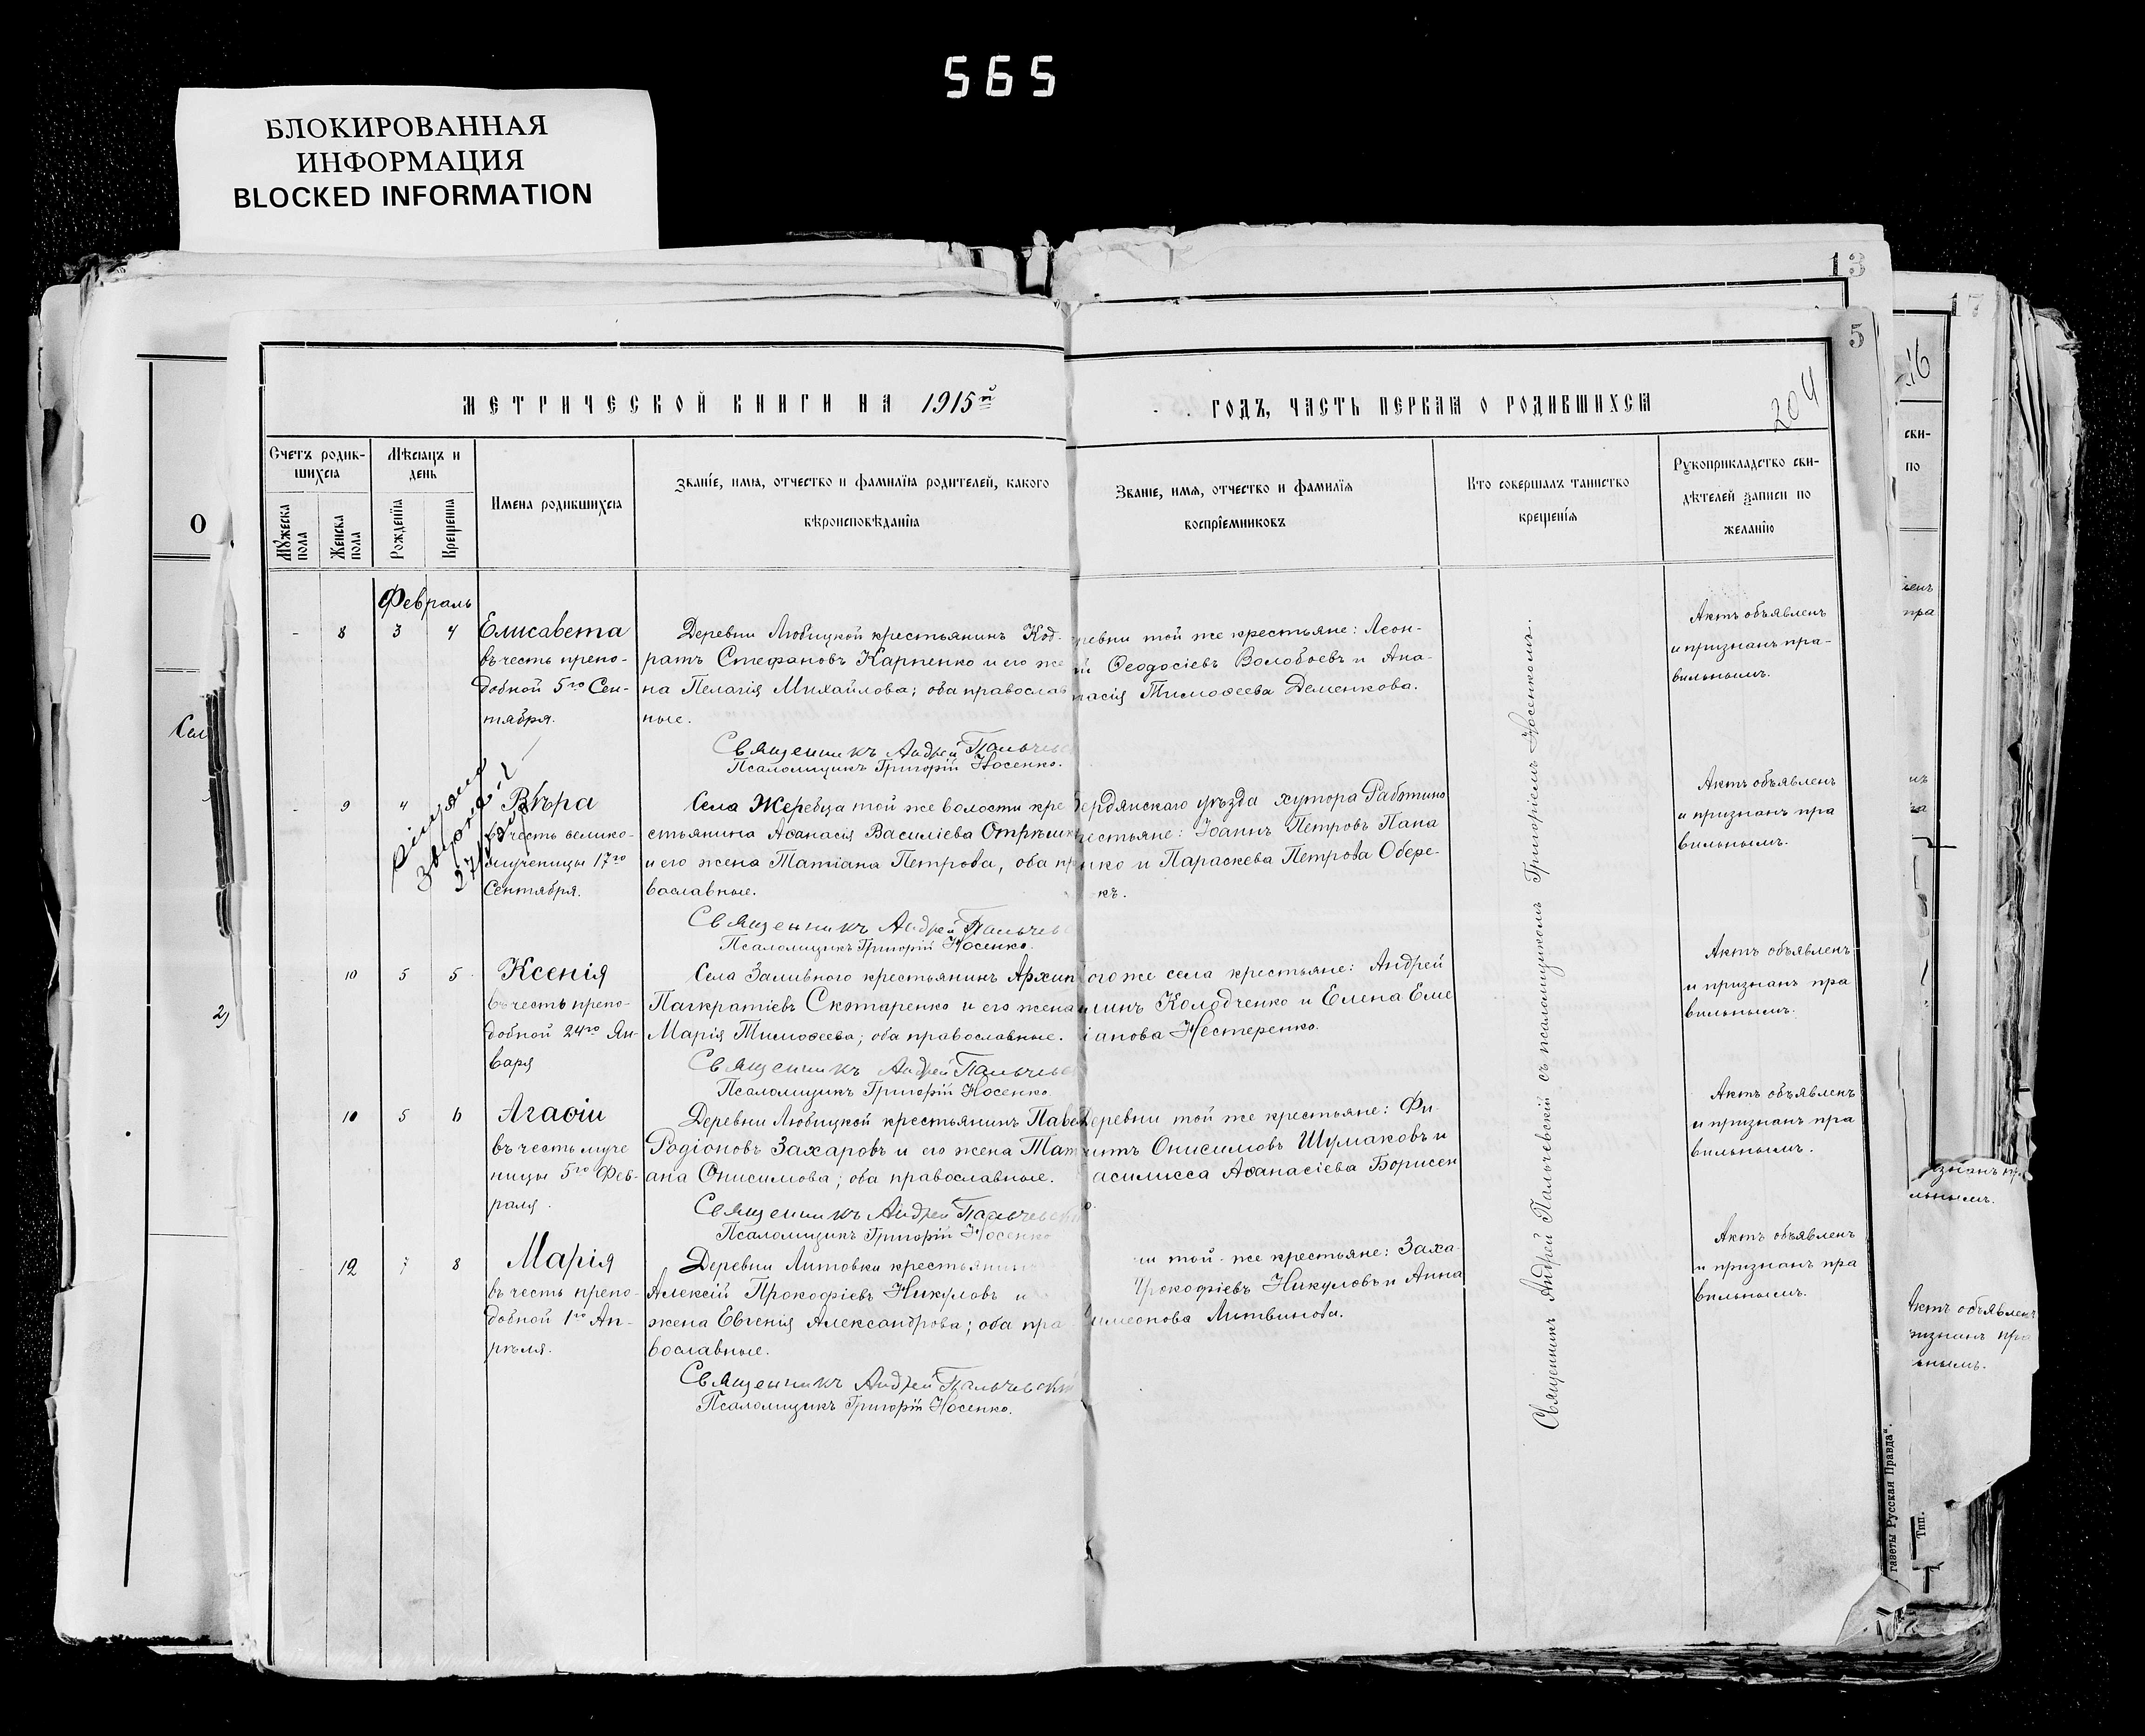 565
БЛОКИРОВАННАЯ
ИНФОРМАЦИЯ
BLOCKED INFORMATION
13
17
5
16
204
МЕТРИЧЕСКОЙ КНИГИ НА 1915й ГОДЪ, ЧАСТЬ ПЕРВАЯ О РОДИВШИХСЯ
Счетъ родив-
шихся
Мѣсяцъ и
день
Мужеска пола
Женска пола
Рожденїя
Крещенїя
Имена родившихся
Званїе, имя, отчество и фамилїя родителей, какого
вѣроисповѣданїя
Званїе, имя, отчество и фамилїя
воспрїемниковъ
Кто совершалъ таинство
крещенїя
Рукоприкладство сви-
дѣтелей записи по
желанїю
Февраль
- 8 3 4 Елисавета
въ честь препо-
добной 5го Сен-
тября.
Деревни Любицкой крестьянинъ Код-
ратъ Стефановъ Карпенко и его же
на Пелагія Михайлова; оба православ
ные.
Священникъ Андрей Пальчевс
Псаломщикъ Григорій Носенко.
ревни той же крестьяне: Леон-
ій Ѳеодосіевъ Волобоевъ и Ана-
тасія Тимоѳеева Деменкова.
Актъ объявленъ
и признанъ пра-
вильнымъ.
- 9 4 Вѣра
въ честь велико-
мученицы 17го
Сентября.
Села Жеребца той же волости кре
стьянина Аѳанасія Василіева Отрѣшк
и его жена Татіана Петрова, оба пр
вославные.
Священникъ Андрей Пальчевс
Псаломщикъ Григорій Носенко.
Бердянскаго уѣзда хутора Работино
рестьяне: Іоаннъ Петровъ Пана
нко и Параскева Петрова Обере-
къ.
Актъ объявленъ
и признанъ пра
вильнымъ.
10 5 5 Ксенія
въ честь препо-
добной 24го Ян-
варя
Села Заливного крестьянинъ Архип
Панкратіевъ Скотаренко и его жена
Марія Тимоѳеева; оба православные.
Священникъ Андрей Пальчевс
Псаломщикъ Григорій Носенко.
ого же села крестьяне: Андрей
Колодченко и Елена Еме
Нестеренко.
Актъ объявленъ
и признанъ пра
вильнымъ.
10 5 6 Агаѳіи
въ честь муче
ницы 5го Фев-
раля.
Деревни Любицкой крестьянинъ Паве
Родіоновъ Захаровъ и его жена Тат
ана Онисимова; оба православные.
Священникъ Андрей Пальчевскі
Псаломщикъ Григорій Носенко
Деревни той же крестьяне: Фи-
Онисимовъ Шумаковъ и
асилисса Аѳанасіева Борисен
Актъ объявленъ
и признанъ пра
вильнымъ.
- 12 7 8 Марія
въ честь препо-
добной 1го Ап-
рѣля.
Деревни Литовки крестьянинъ
Алексій Прокофіевъ Никуловъ и
жена Евгенія Александрова; оба пра-
вославные.
Священникъ Андрей Пальчевскій
Псаломщикъ Григорій Носенко.
ни той-же крестьяне: Заха-
Прокофіевъ Никуловъ и Анна
имеонова Литвинова.
Актъ объявленъ
и признанъ пра
вильнымъ.
Священникъ Андрей Пальчевскій съ псаломщикомъ Григоріемъ Носенкомъ.
Актъ объявленъ
изнанъ пра
ьнымъ.
газеты Русская Правда“.
Тип.